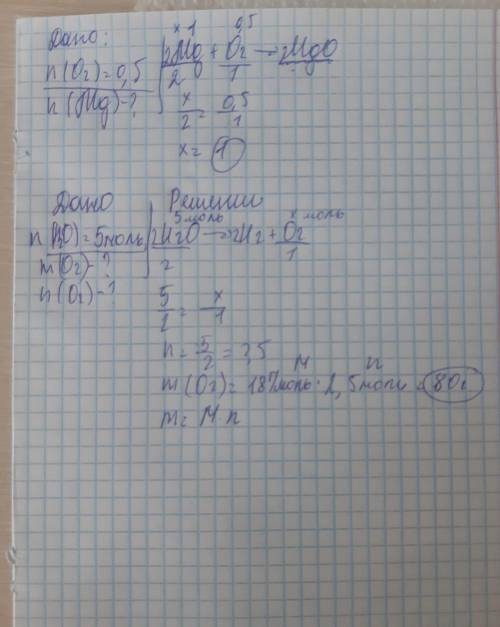 Дано:
n(O₂)=0,5
n(Mg)-?
x-1 0,5
2Mg + O₂ → 2MgO
2 1
x/2 = 0,5/1
x = 1
Дано
n(H₂O)=5моль
m(O₂)-?
n(O₂)-?
Решении
5моль x моль
2H₂O → 2H₂ + O₂
2 1
5/2 = x/1
n = 5/2 = 2,5
M n
m(O₂) = моль · 2,5моль = 80г
m = M·n